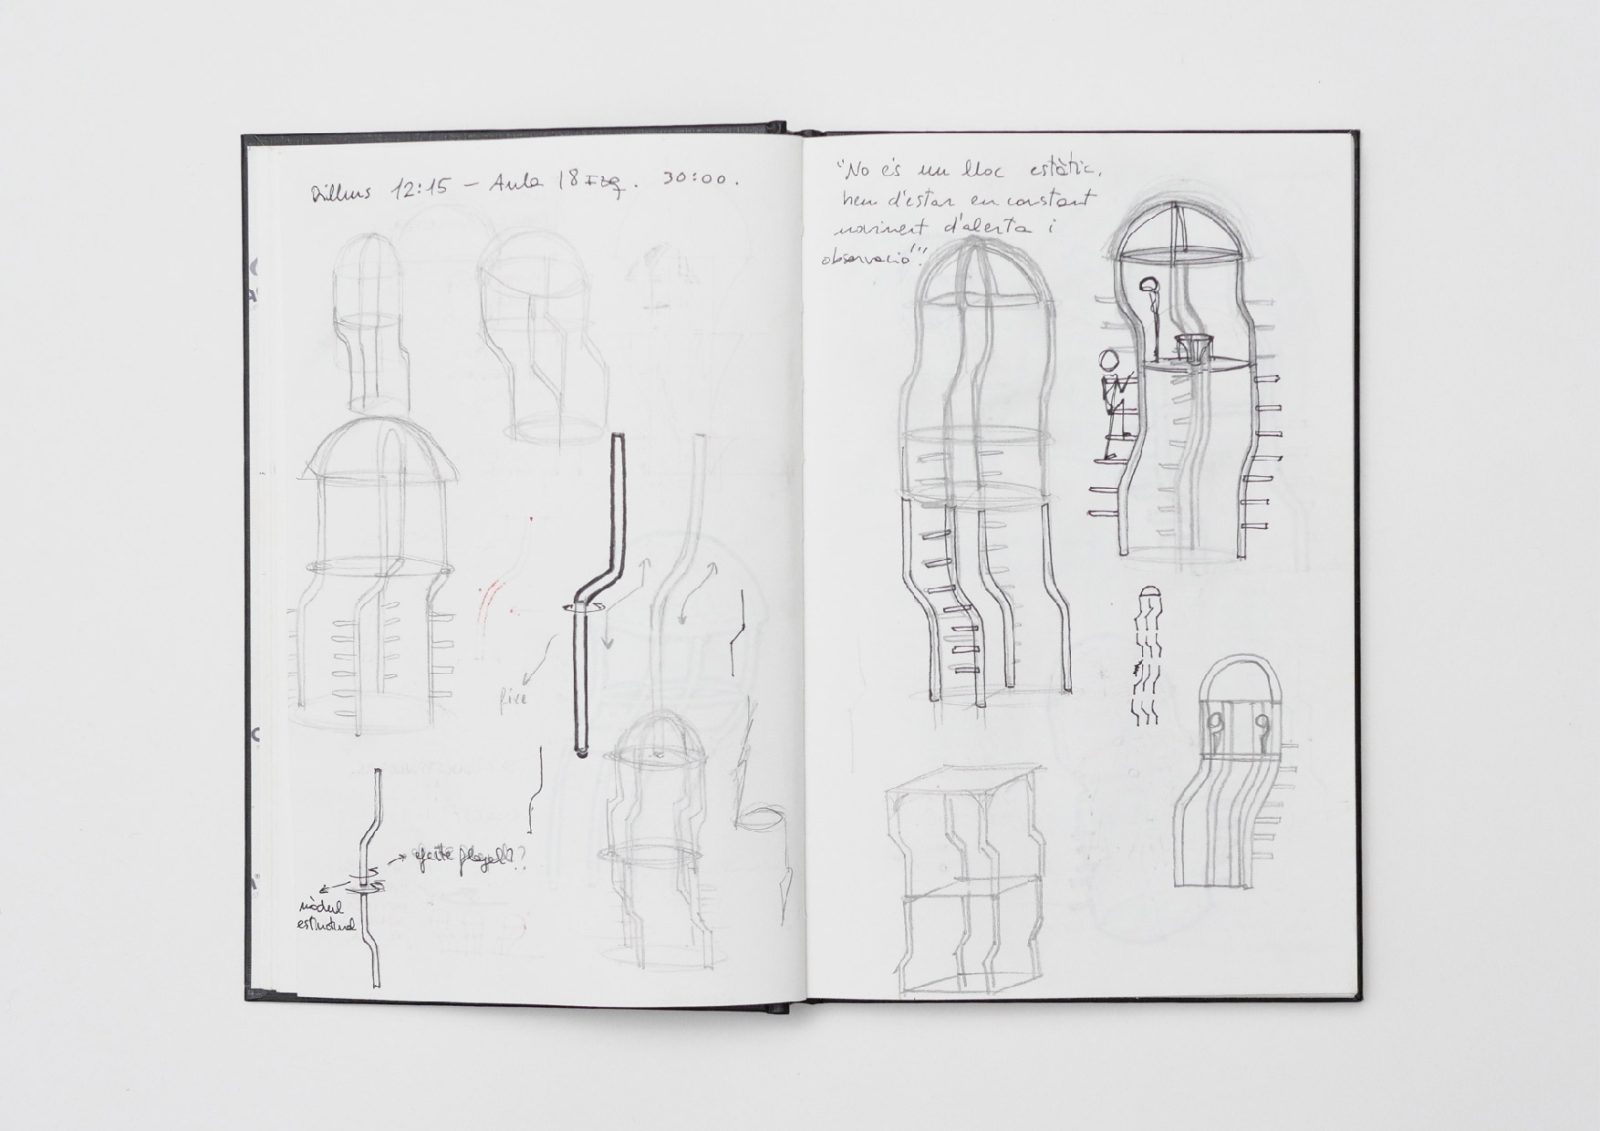 Dilluns 12:15 – Aula 18 Izq. 30:00.
efecte plegat??
mòdul
estructural
"No és un lloc estàtic,
hem d'estar en constant
moviment d'alerta i
observació"!